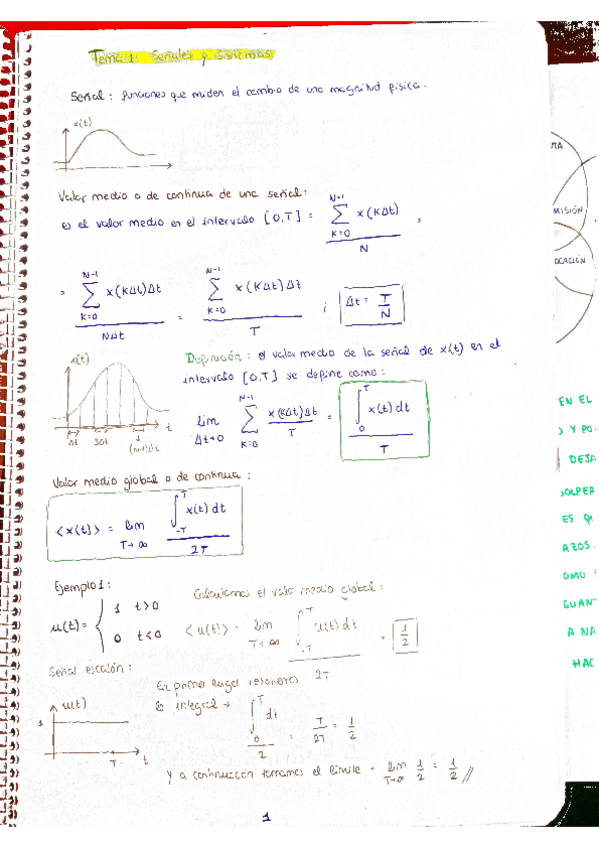 Tema 1: Señales y sistemas
Señal: funciones que miden el cambio de una magnitud física.
x(t)
Valor medio o de continua de una señal:
es el valor medio en el intervalo [0,T] = \frac{\sum_{K=0}^{N-1} x(KΔt)}{N} =
= \frac{\sum_{K=0}^{N-1} x(KΔt)Δt}{NΔt} = \frac{\sum_{K=0}^{N-1} x(KΔt)Δt}{T} ; Δt = \frac{T}{N}
x(t)
Δt 3Δt (N-1)Δt t
Definición: el valor medio de la señal de x(t) en el
intervalo [0,T] se define como:
lim_{Δt→0} \sum_{K=0}^{N-1} \frac{x(KΔt)Δt}{T} = \frac{\int_0^T x(t)dt}{T}
Valor medio global o de continua:
<x(t)> = lim_{T→∞} \frac{\int_{-T}^{T} x(t)dt}{2T}
Ejemplo 1:
u(t) = { 1 t>0
0 t<0
Calculamos el valo medio global:
<u(t)> = lim_{T→∞} \frac{\int_{-T}^{T} u(t)dt}{2T} = \frac{1}{2}
Señal escalón:
u(t)
1
T t
En primer lugar resolvemos
la integral → \frac{\int_0^T dt}{2} = \frac{T}{2T} = \frac{1}{2}
Y a continuación tomamos el límite = lim_{T→∞} \frac{1}{2} = \frac{1}{2} //
1
MISIÓN
OCACIÓN
EN EL
Y PO
DEJA
GOLPEA
ES QU
AZOS.
OMO
GUAN
A NA
HAC